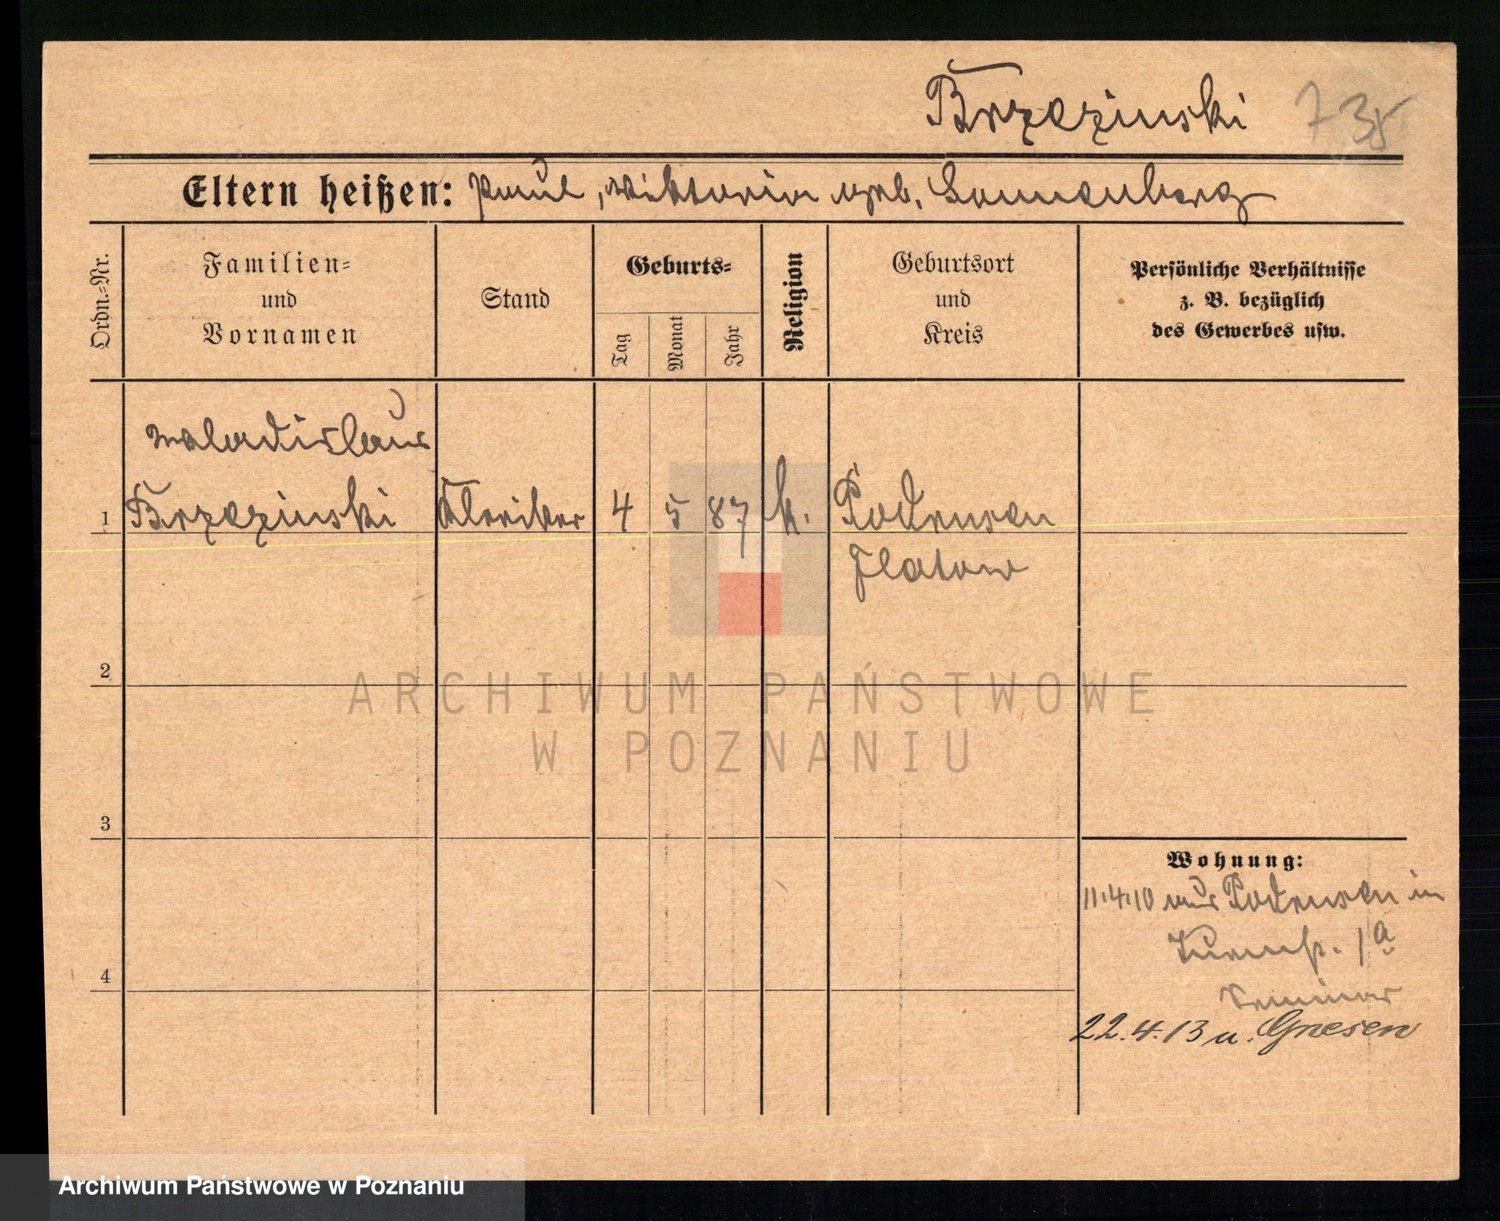 Brzezinski 735
Eltern heißen: Paul, Wiktoria geb. Sonnenberg
Ordn.-Nr.
Familien-
und
Vornamen
Stand
Geburts-
Tag
Monat
Jahr
Religion
Geburtsort
und
Kreis
Persönliche Verhältnisse
z. B. bezüglich
des Gewerbes usw.
Waladislaus
1 Brzezinski Kleriker 4 5 87 k. Podrusen
Flatow
2
3
4
Wohnung:
11.4.10 aus Podrusen in
1a
Seminar
22.4.13 n. Gnesen
ARCHIWUM PAŃSTWOWE
W POZNANIU
Archiwum Państwowe w Poznaniu